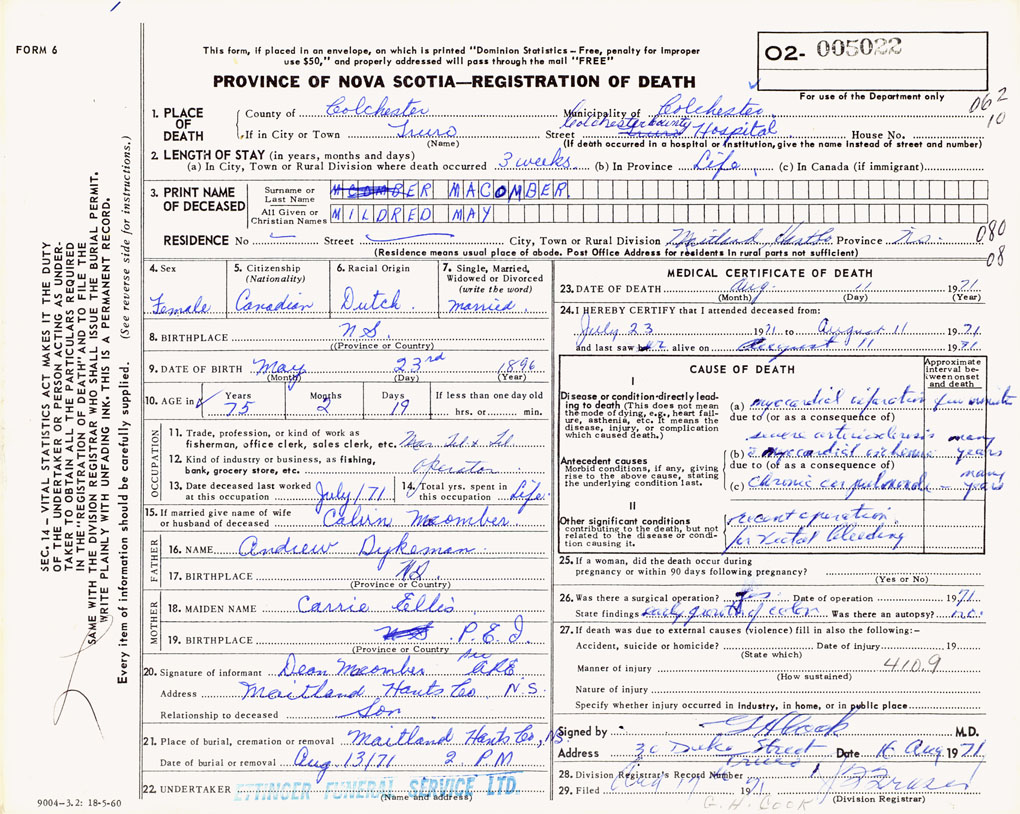 FORM 6
This form, if placed in an envelope, on which is printed "Dominion Statistics – Free, penalty for improper
use $50," and properly addressed will pass through the mail "FREE"
PROVINCE OF NOVA SCOTIA—REGISTRATION OF DEATH
O2- 005022
For use of the Department only
062
10
1. PLACE OF DEATH
County of Colchester Municipality of Colchester
If in City or Town Truro Street Colchester County Hospital House No.
(Name) (If death occurred in a hospital or institution, give the name instead of street and number)
2. LENGTH OF STAY (in years, months and days)
(a) In City, Town or Rural Division where death occurred 3 weeks (b) In Province Life (c) In Canada (if immigrant)
3. PRINT NAME OF DECEASED
Surname or Last Name MACOMBER
All Given or Christian Names MILDRED MAY
RESIDENCE No Street City, Town or Rural Division Maitland Hants Co Province N.S.
080
08
(Residence means usual place of abode. Post Office Address for residents in rural parts not sufficient)
4. Sex Female
5. Citizenship (Nationality) Canadian
6. Racial Origin Dutch
7. Single, Married, Widowed or Divorced (write the word) Married
8. BIRTHPLACE N S
(Province or Country)
9. DATE OF BIRTH May 23rd 1896
(Month) (Day) (Year)
10. AGE in Years 75 Months 2 Days 19 If less than one day old hrs. or min.
OCCUPATION
11. Trade, profession, or kind of work as
fisherman, office clerk, sales clerk, etc. Mar. Tel & Tel
12. Kind of industry or business, as fishing,
bank, grocery store, etc. Operator
13. Date deceased last worked at this occupation July/71
14. Total yrs. spent in this occupation Life
15. If married give name of wife or husband of deceased Calvin Macomber
FATHER
16. NAME Andrew Dykeman
17. BIRTHPLACE N.S.
(Province or Country)
MOTHER
18. MAIDEN NAME Carrie Ellis
19. BIRTHPLACE P.E.I.
(Province or Country)
20. Signature of informant Dean Macomber
Address Maitland Hants Co N.S.
Relationship to deceased Son
21. Place of burial, cremation or removal Maitland Hants Co, NS
Date of burial or removal Aug. 13/71 2 PM
22. UNDERTAKER ETTINGER FUNERAL SERVICE LTD.
(Name and address)
MEDICAL CERTIFICATE OF DEATH
23. DATE OF DEATH Aug. 11 1971
(Month) (Day) (Year)
24. I HEREBY CERTIFY that I attended deceased from:
July 23 1971 to August 11 1971
and last saw alive on August 11 1971
CAUSE OF DEATH
Approximate interval between onset and death
I
Disease or condition directly leading to death (This does not mean the mode of dying, e.g., heart failure, asthenia, etc. It means the disease, injury, or complication which caused death.)
(a) myocardial infarction few minutes
due to (or as a consequence of)
severe arteriosclerosis many
(b) myocardial ischemia years
Antecedent causes
Morbid conditions, if any, giving rise to the above cause, stating the underlying condition last.
due to (or as a consequence of)
(c) chronic cor pulmonale – many years
II
Other significant conditions contributing to the death, but not related to the disease or condition causing it.
recent operation
for rectal bleeding
25. If a woman, did the death occur during
pregnancy or within 90 days following pregnancy?
(Yes or No)
26. Was there a surgical operation? Yes Date of operation 1971
State findings early growth of colon Was there an autopsy? no
27. If death was due to external causes (violence) fill in also the following:–
Accident, suicide or homicide? Date of injury 19
(State which)
Manner of injury 410.9
(How sustained)
Nature of injury
Specify whether injury occurred in industry, in home, or in public place
Signed by G H Cook M.D.
Address 30 Duke Street Truro Date 16 Aug 1971
28. Division Registrar's Record Number
29. Filed 17 1971
G. H. COOK
(Division Registrar)
9004–3.2: 18-5-60
SEC. 14 – VITAL STATISTICS ACT MAKES IT THE DUTY
OF THE UNDERTAKER OR PERSON ACTING AS UNDER-
TAKER TO OBTAIN ALL THE PARTICULARS REQUIRED
IN THE "REGISTRATION OF DEATH" AND TO FILE THE
SAME WITH THE DIVISION REGISTRAR WHO SHALL ISSUE THE BURIAL PERMIT.
WRITE PLAINLY WITH UNFADING INK. THIS IS A PERMANENT RECORD.
Every item of information should be carefully supplied. (See reverse side for instructions.)